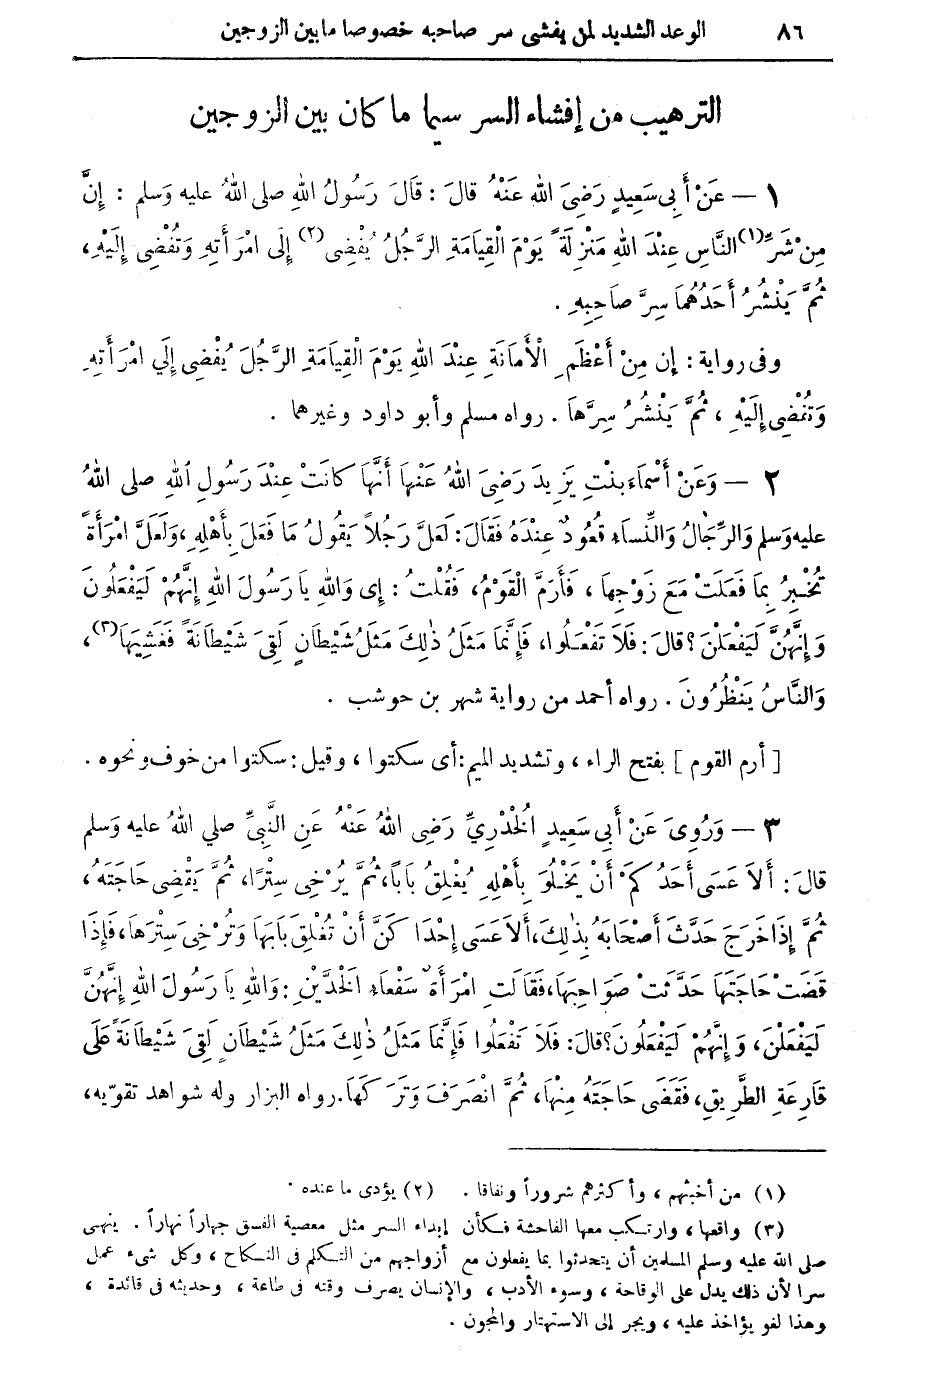 ٨٦ الوعد الشديد لمن يفشى سر صاحبه خصوصا مابين الزوجين
الترهيب من إفشاء السر سيما ما كان بين الزوجين
١ — عَنْ أَبِى سَعِيدٍ رَضِىَ اللهُ عَنْهُ قالَ : قَالَ رَسُولُ اللهِ صلى اللهُ عليه وَسلم : إِنَّ
مِنْ شَرِّ(١) النَّاسِ عِنْدَ اللهِ مَنْزِلَةً يَوْمَ الْقِيَامَةِ الرَّجُلُ يُفْضِى(٢) إِلَى امْرَأَتِهِ وَتُفْضِى إِلَيْهِ ،
ثُمَّ يَنْشُرُ أَحَدُهُمَا سِرَّ صَاحِبِهِ .
وفى رواية : إن مِنْ أَعْظَمِ الْأَمَانَةِ عِنْدَ اللهِ يَوْمَ الْقِيَامَةِ الرَّجُلَ يُفْضِى إِلَي امْرَأَتِهِ
وَتُفْضِى إِلَيْهِ ، ثُمَّ يَنْشُرُ سِرَّهَا . رواه مسلم وأبو داود وغيرهما .
٢ — وَعَنْ أَسْمَاءَ بِنْتِ يَزِيدَ رَضِىَ اللهُ عَنْهَا أَنَّهَا كَانَتْ عِنْدَ رَسُولِ اللهِ صلى اللهُ
عليه وَسلم وَالرِّجَالُ وَالنِّسَاءِ قُعُودٌ عِنْدَهُ فَقَالَ : لَعَلَّ رَجُلاً يَقُولُ مَا فَعَلَ بِأَهْلِهِ ، وَلَعَلَّ امْرَأَةً
تُخْبِرُ بِمَا فَعَلَتْ مَعَ زَوْجِهَا ، فَأَرَمَّ الْقَوْمُ ، فَقُلْتُ : إِى وَاللهِ يا رَسُولَ اللهِ إِنَّهُمْ لَيَفْعَلُونَ
وَإِنَّهُنَّ لَيَفْعَلْنَ ؟ قالَ : فَلَا تَفْعَلُوا ، فَإِنَّمَا مَثَلُ ذٰلِكَ مَثَلُ شَيْطَانٍ لَقِىَ شَيْطَانَةً فَغَشِيَهَا(٣) ،
وَالنَّاسُ يَنْظُرُونَ . رواه أحمد من رواية شهر بن حوشب .
[ أرم القوم ] بفتح الراء ، وتشديد الميم : أى سكتوا ، وقيل : سكتوا من خوف ونحوه .
٣ — وَرُوِىَ عَنْ أَبِى سَعِيدٍ الْخُدْرِيِّ رَضِىَ اللهُ عَنْهُ عَنِ النَّبِيِّ صلي اللهُ عليه وَسلم
قالَ : أَلاَ عَسَى أَحَدُكُمْ أَنْ يَخْلُوَ بِأَهْلِهِ يُغْلِقُ بَاباً ، ثُمَّ يُرْخِى سِتْرًا ، ثُمَّ يَقْضِى حَاجَتَهُ ،
ثُمَّ إِذَا خَرَجَ حَدَّثَ أَصْحَابَهُ بِذٰلِكَ ، أَلاَ عَسَى إِحْدَاكُنَّ أَنْ تُغْلِقَ بَابَهَا وَتُرْخِىَ سِتْرَهَا ، فَإِذَا
قَضَتْ حَاجَتَهَا حَدَّثَتْ صَوَاحِبَهَا ، فَقَالَتِ امْرَأَةٌ سَفْعَاءِ الْخَدَّيْنِ : وَاللهِ يَا رَسُولَ اللهِ إِنَّهُنَّ
لَيَفْعَلْنَ ، وَإِنَّهُمْ لَيَفْعَلُونَ ؟ قالَ : فَلَا تَفْعَلُوا فَإِنَّمَا مَثَلُ ذٰلِكَ مَثَلُ شَيْطَانٍ لَقِىَ شَيْطَانَةً عَلَى
قَارِعَةِ الطَّرِيقِ ، فَقَضَى حَاجَتَهُ مِنْهَا ، ثُمَّ انْصَرَفَ وَتَرَكَهَا . رواه البزار وله شواهد تقوّيه ،
(١) من أخبثهم ، وأكثرهم شروراً ونفاقا . (٢) يؤدى ما عنده .
(٣) واقعها ، وارتكب معها الفاحشة فكأن إبداء السر مثل معصية الفسق جهاراً نهاراً . ينهى
صلى الله عليه وسلم المسلمين أن يتحدثوا بما يفعلون مع أزواجهم من التكلم فى النكاح ، وكل شىء عمل
سرا لأن ذلك يدل على الوقاحة ، وسوء الأدب ، والإنسان يصرف وقته فى طاعة ، وحديثه فى فائدة ،
وهذا لغو يؤاخذ عليه ، ويجر إلى الاستهتار والمجون .